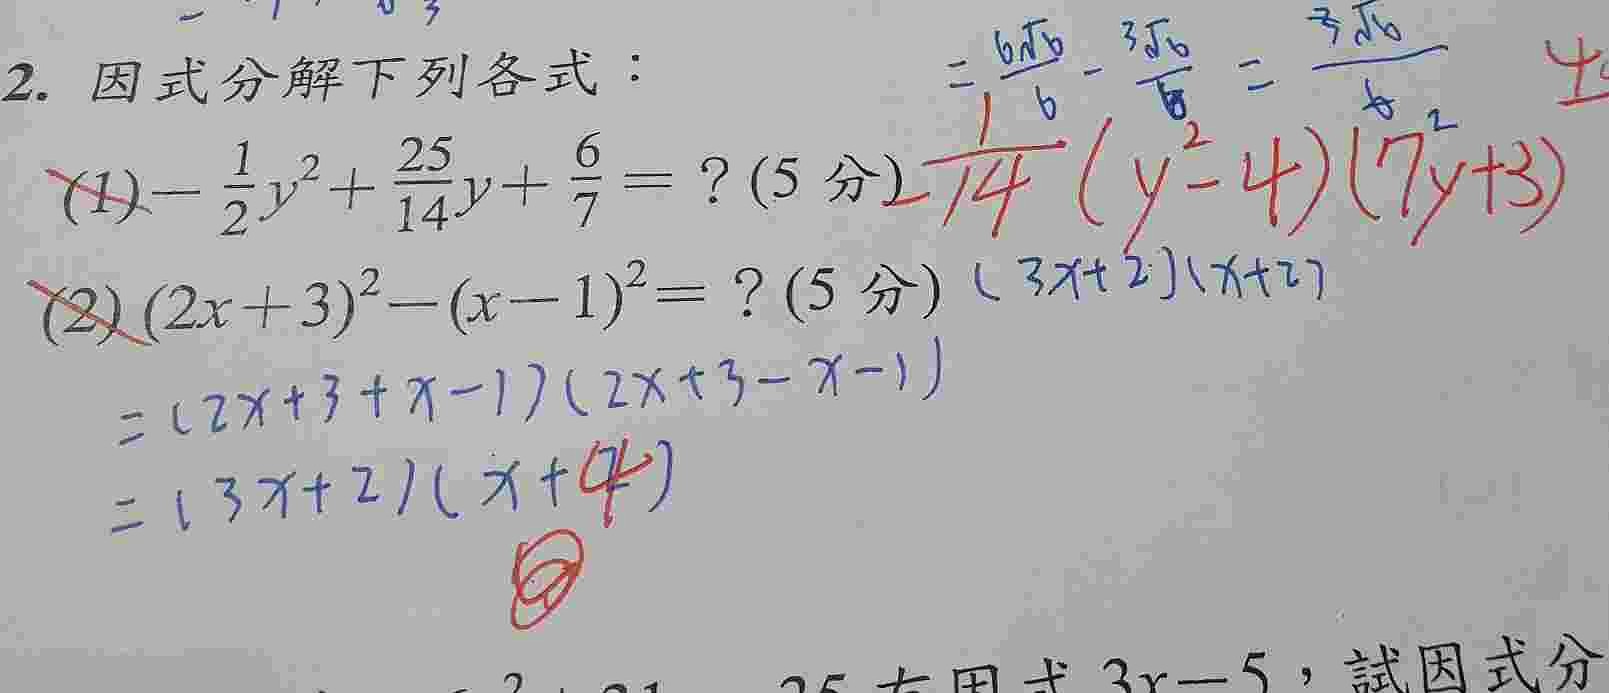 = 6√6/6 - 3√6/6 = 3√6/6
2. 因式分解下列各式：
(1) -1/2 y² + 25/14 y + 6/7 = ? (5 分) -1/14 (y² - 4)(7y² + 3)
(2) (2x+3)² - (x-1)² = ? (5 分) (3x+2)(x+2)
= (2x+3+x-1)(2x+3-x-1)
= (3x+2)(x+4)
25 有因式 3x-5，試因式分